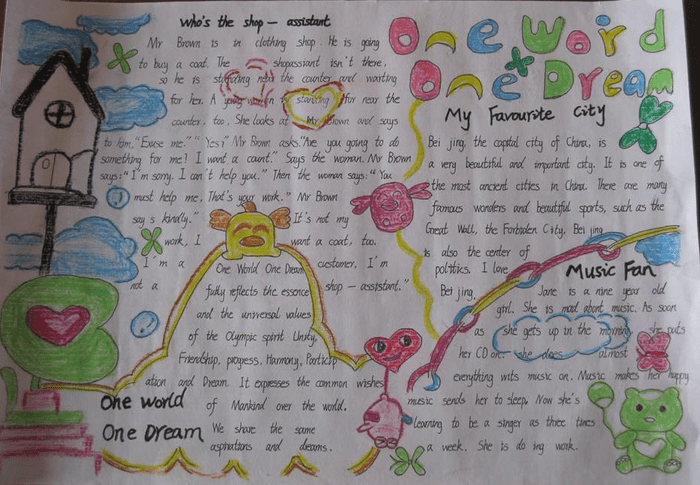 Who's the shop - assistant
Mr Brown is in clothing shop. He is going
to buy a coat. The shopassisant isn't there,
so he is standing near the counter and waiting
for her. A young woman is standing for near the
counter, too. She looks at Mr Brown and says
to him, "Excuse me." "Yes?" Mr Brown asks. "Are you going to do
something for me? I want a count." Says the woman. Mr Brown
says: "I'm sorry. I can't help you." Then the woman says: "You
must help me. That's your work." Mr Brown
say s kindly." It's not my
work, I want a coat, too.
I'm a customer, I'm
not a shop - assistant."
One World One Dream
fully reflects the essence
and the universal values
of the Olympic spirit Unity,
Friendship, progess, Harmony, Particip
ation and Dream. It expresses the common wishes
One World
of Mankind over the world.
One Dream
We share the same
aspirations and dreams.
One Word
One Dream
My Favourite City
Bei jing, the capital city of China, is
a very beautiful and important city. It is one of
the most ancient cities in China. There are many
famous wonders and beautiful sports, such as the
Great Wall, the Forbiden City. Bei jing
is also the center of
politics. I love
Bei jing.
Music Fan
Jane is a nine year old
girl. She is mad about music. As soon
as she gets up in the morning, she puts
her CD on. she does almost
everything wits music on. Music makes her happy
music sends her to sleep. Now she's
learning to be a singer as three times
a week. She is do ing work.